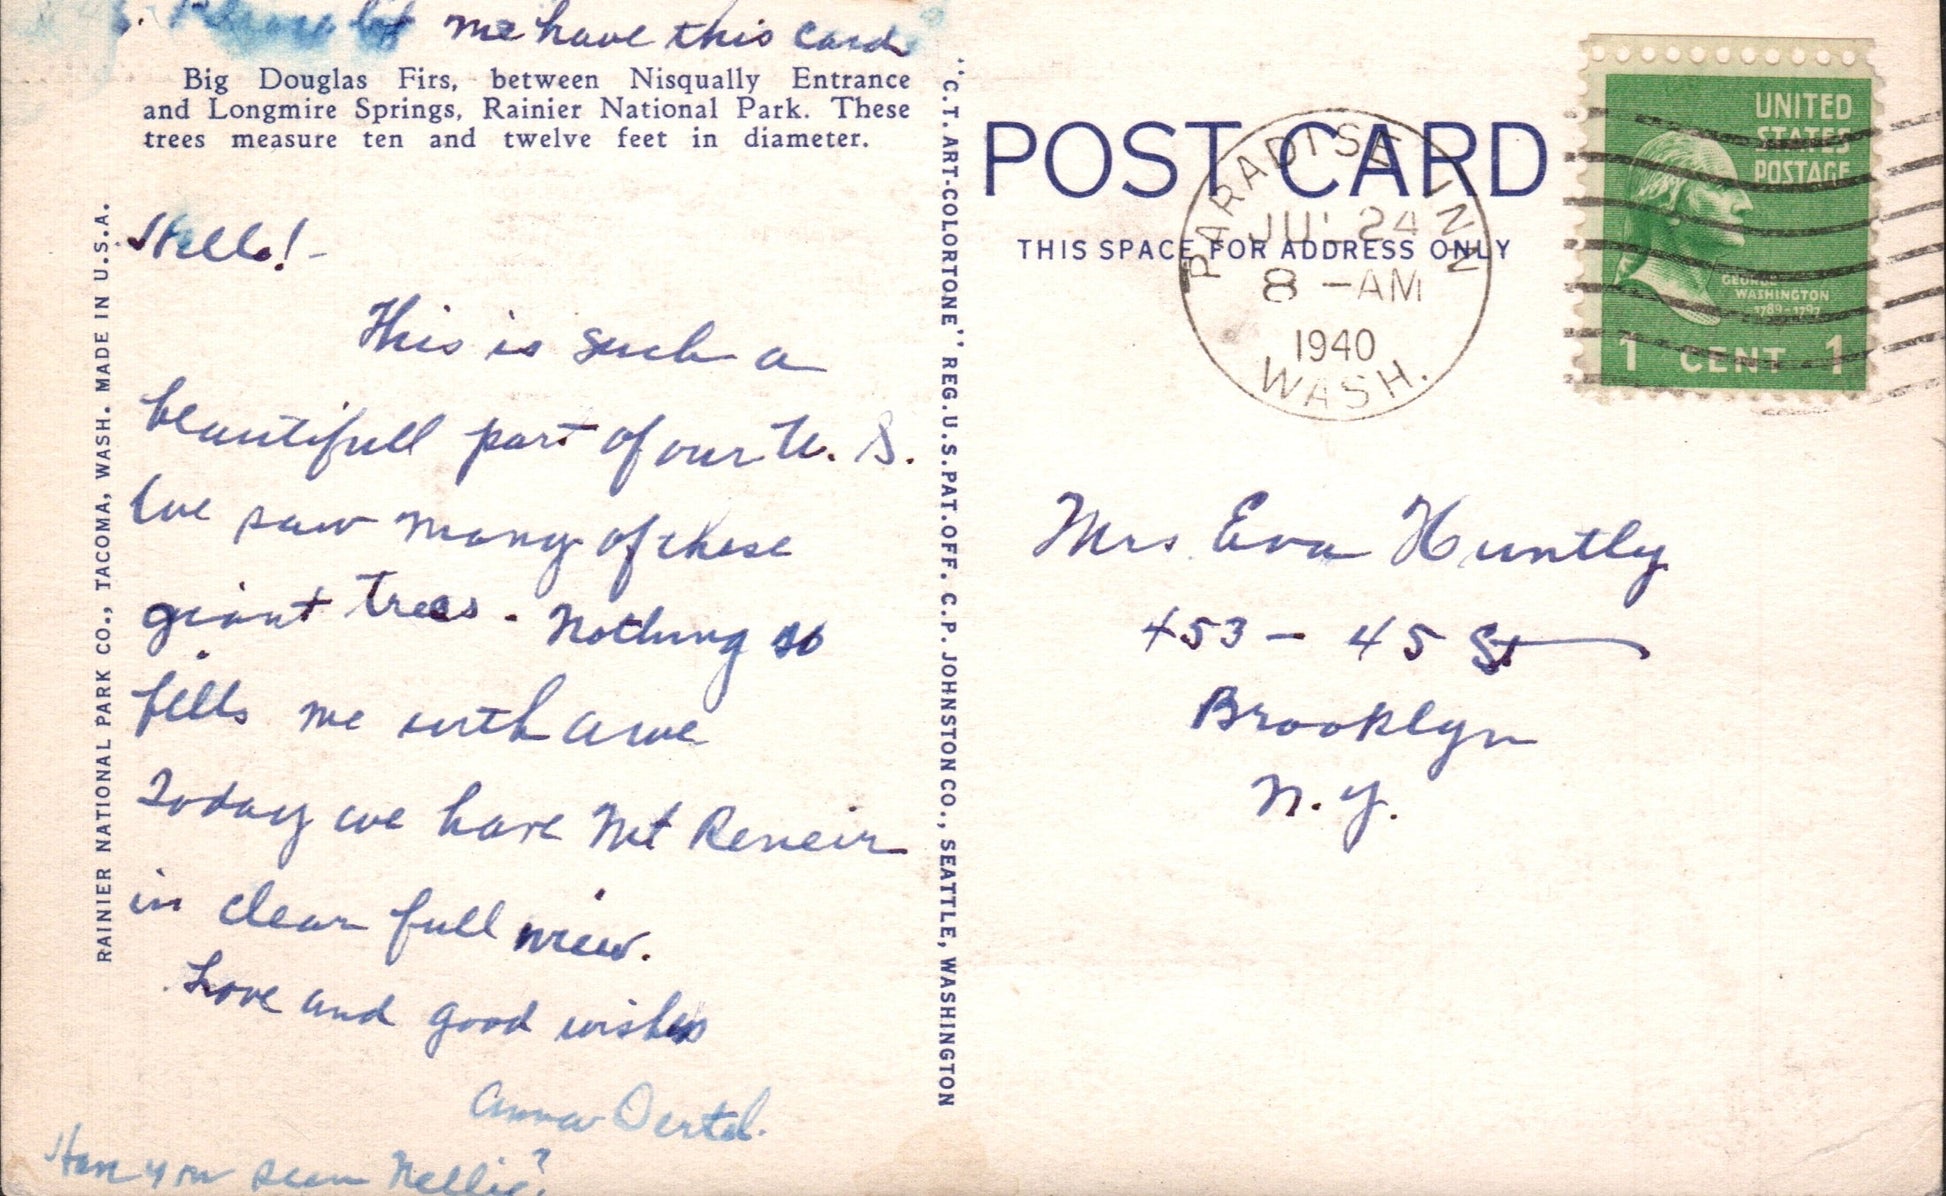 Please let me have this card
Big Douglas Firs, between Nisqually Entrance
and Longmire Springs, Rainier National Park. These
trees measure ten and twelve feet in diameter.
Hello! -
This is such a
beautifull part of our U. S.
We saw many of these
giant trees. Nothing so
fills me with awe
Today we have Mt Reneir
in clear full view.
Love and good wishes
Anna Oertel.
Have you seen Nellie?
RAINIER NATIONAL PARK CO., TACOMA, WASH. MADE IN U.S.A.
"C.T. ART-COLORTONE" REG. U.S. PAT. OFF. C.P. JOHNSTON CO., SEATTLE, WASHINGTON
POST CARD
THIS SPACE FOR ADDRESS ONLY
PARADISE INN
JUL 24
8 -AM
1940
WASH.
UNITED
STATES
POSTAGE
GEORGE
WASHINGTON
1789-1797
1 CENT 1
Mrs Eva Huntly
453 - 45 St
Brooklyn
N.Y.